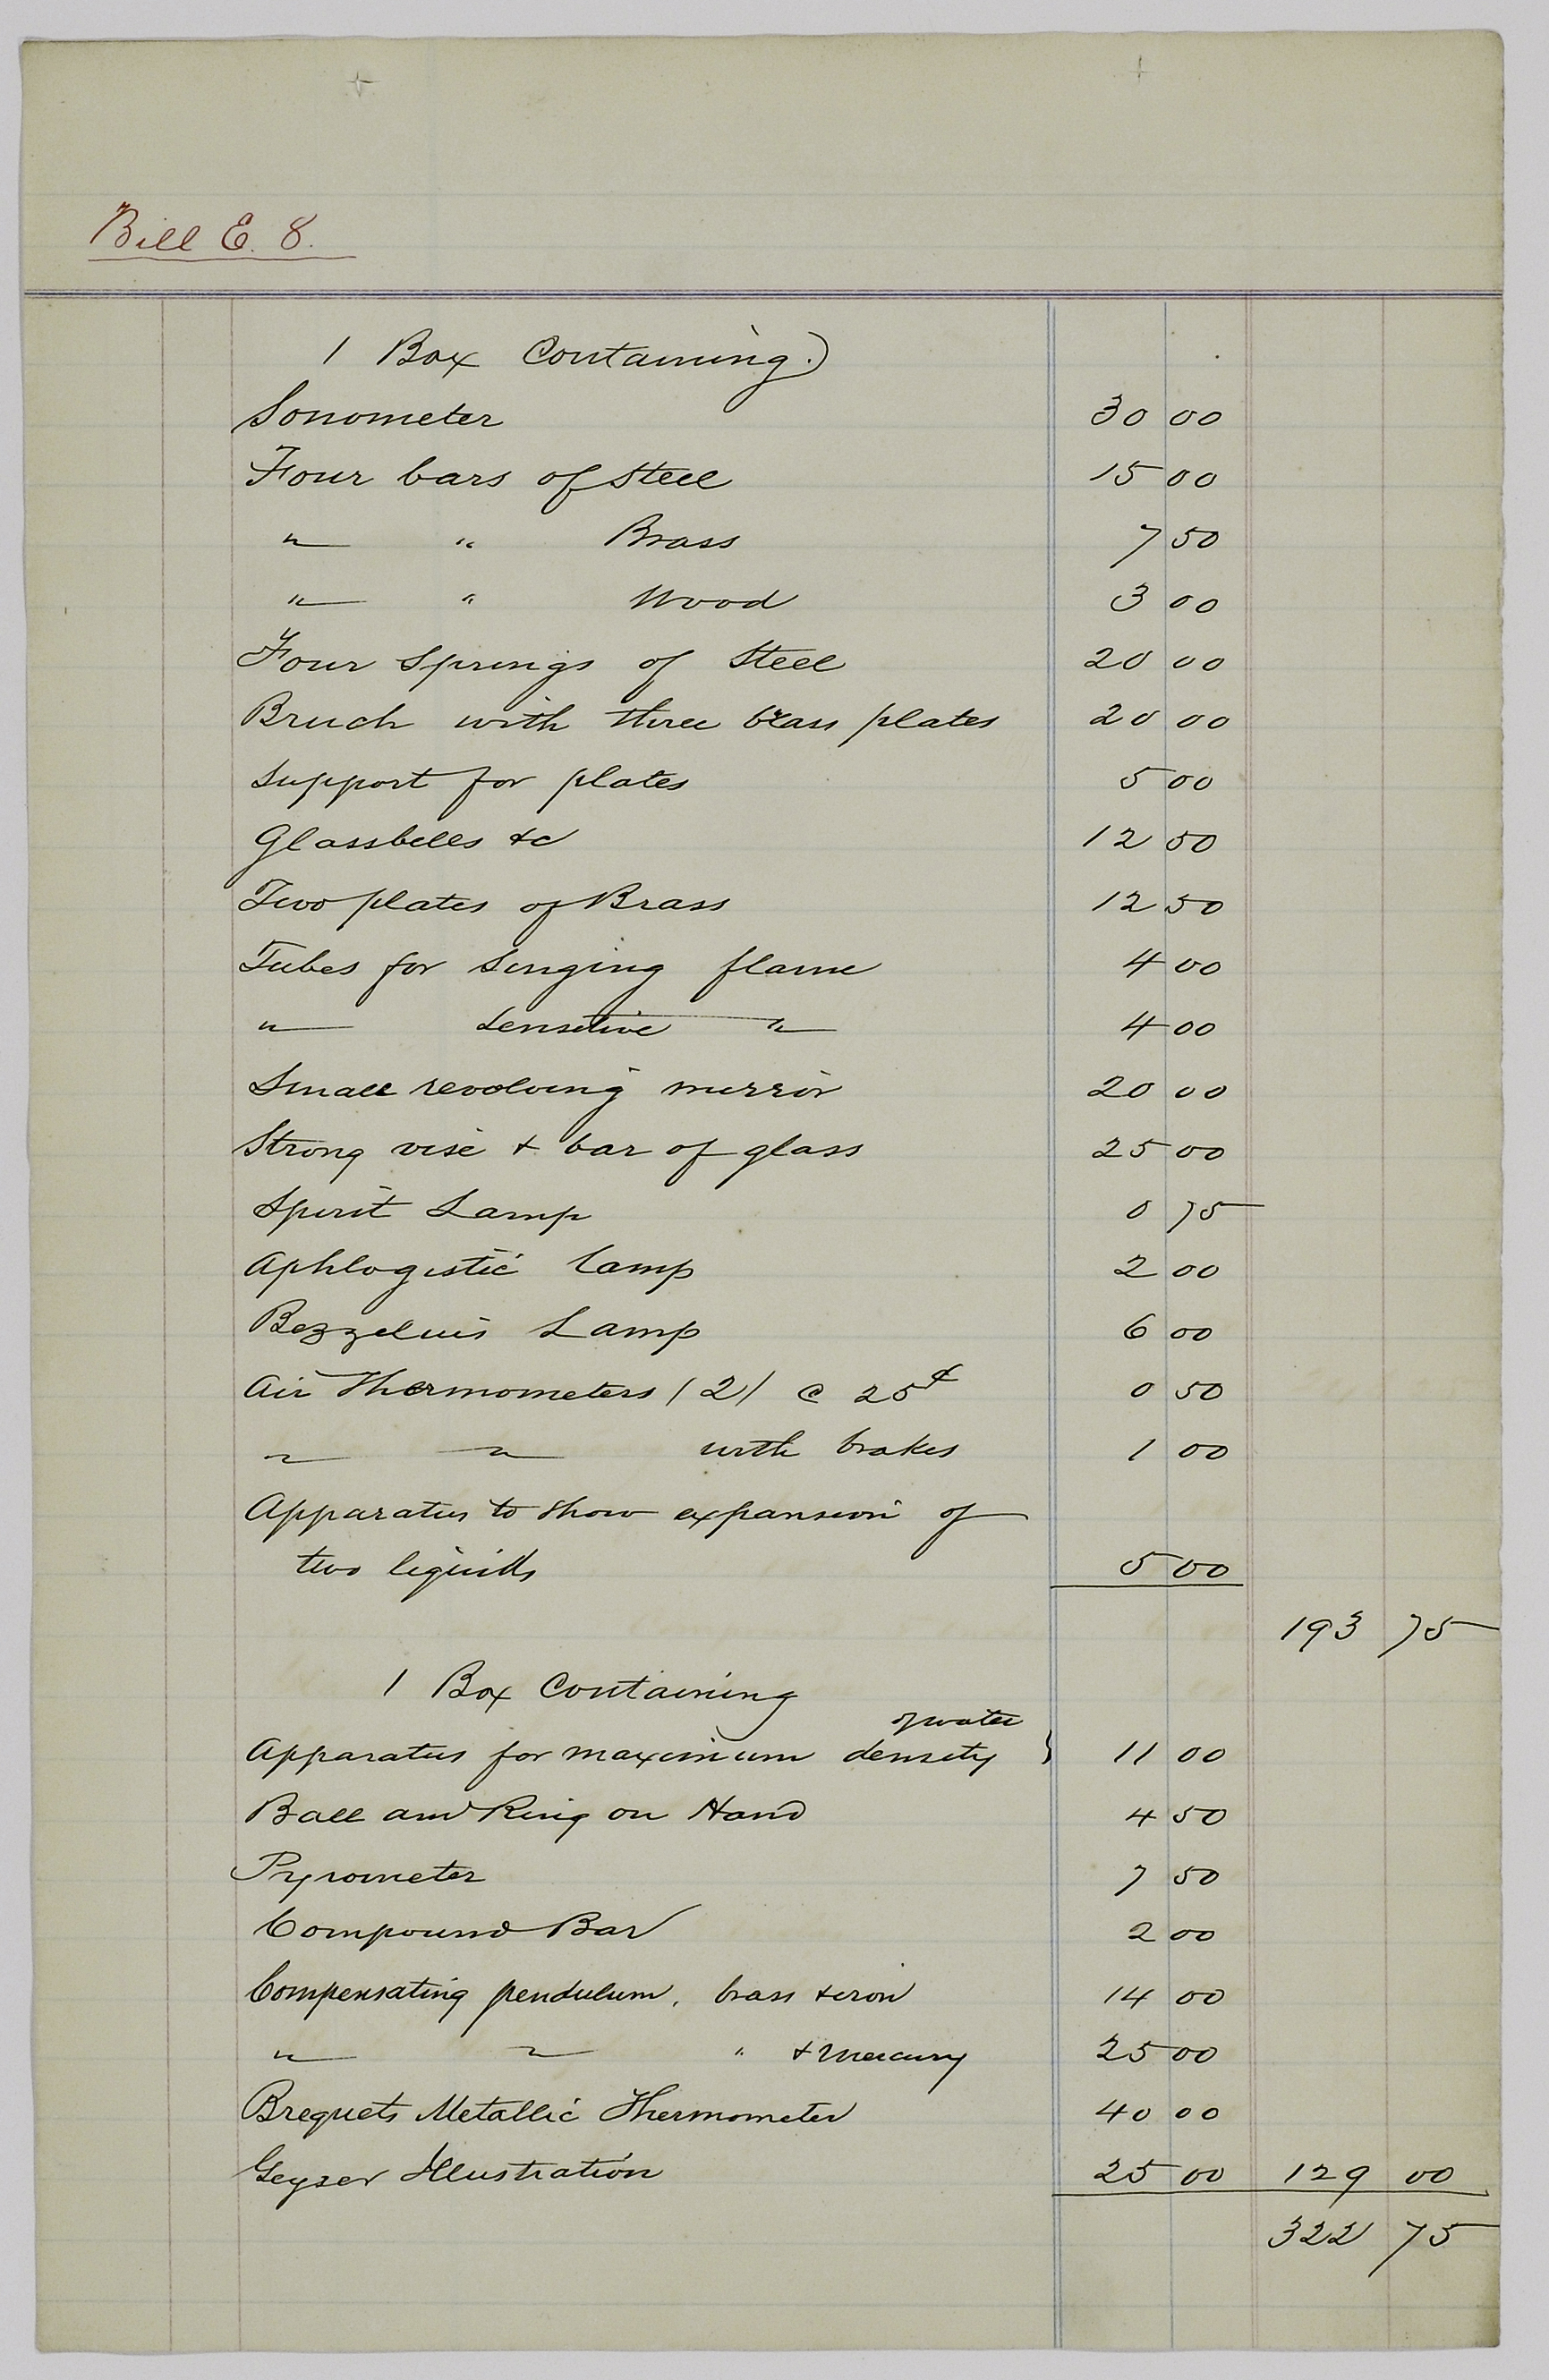 Bill E. 8.
1 Box Containing.)
Sonometer 30 00
Four bars of Steel 15 00
" " Brass 7 50
" " Wood 3 00
Four Springs of Steel 20 00
with three brass plates 20 00
Support for plates 5 00
Glassbells &c 12 50
Two plates of Brass 12 50
Tubes for Singing flame 4 00
" Sensitive " 4 00
Small revolving mirror 20 00
Strong vise & bar of glass 25 00
Spirit Lamp 0 75
Aphlogistic Lamp 2 00
Bezzeluis Lamp 6 00
Air Thermometers (2) @ 25¢ 0 50
" " with 1 00
Apparatus to show expansion of
two liquids 5 00
193 75
1 Box Containing
of water
Apparatus for maximum density } 11 00
Ball and Ring on Hand 4 50
Pyrometer 7 50
Compound Bar 2 00
Compensating pendulum, brass & iron 14 00
" " " & Mercury 25 00
Breguets Metallic Thermometer 40 00
Geyser Illustration 25 00 129 00
322 75